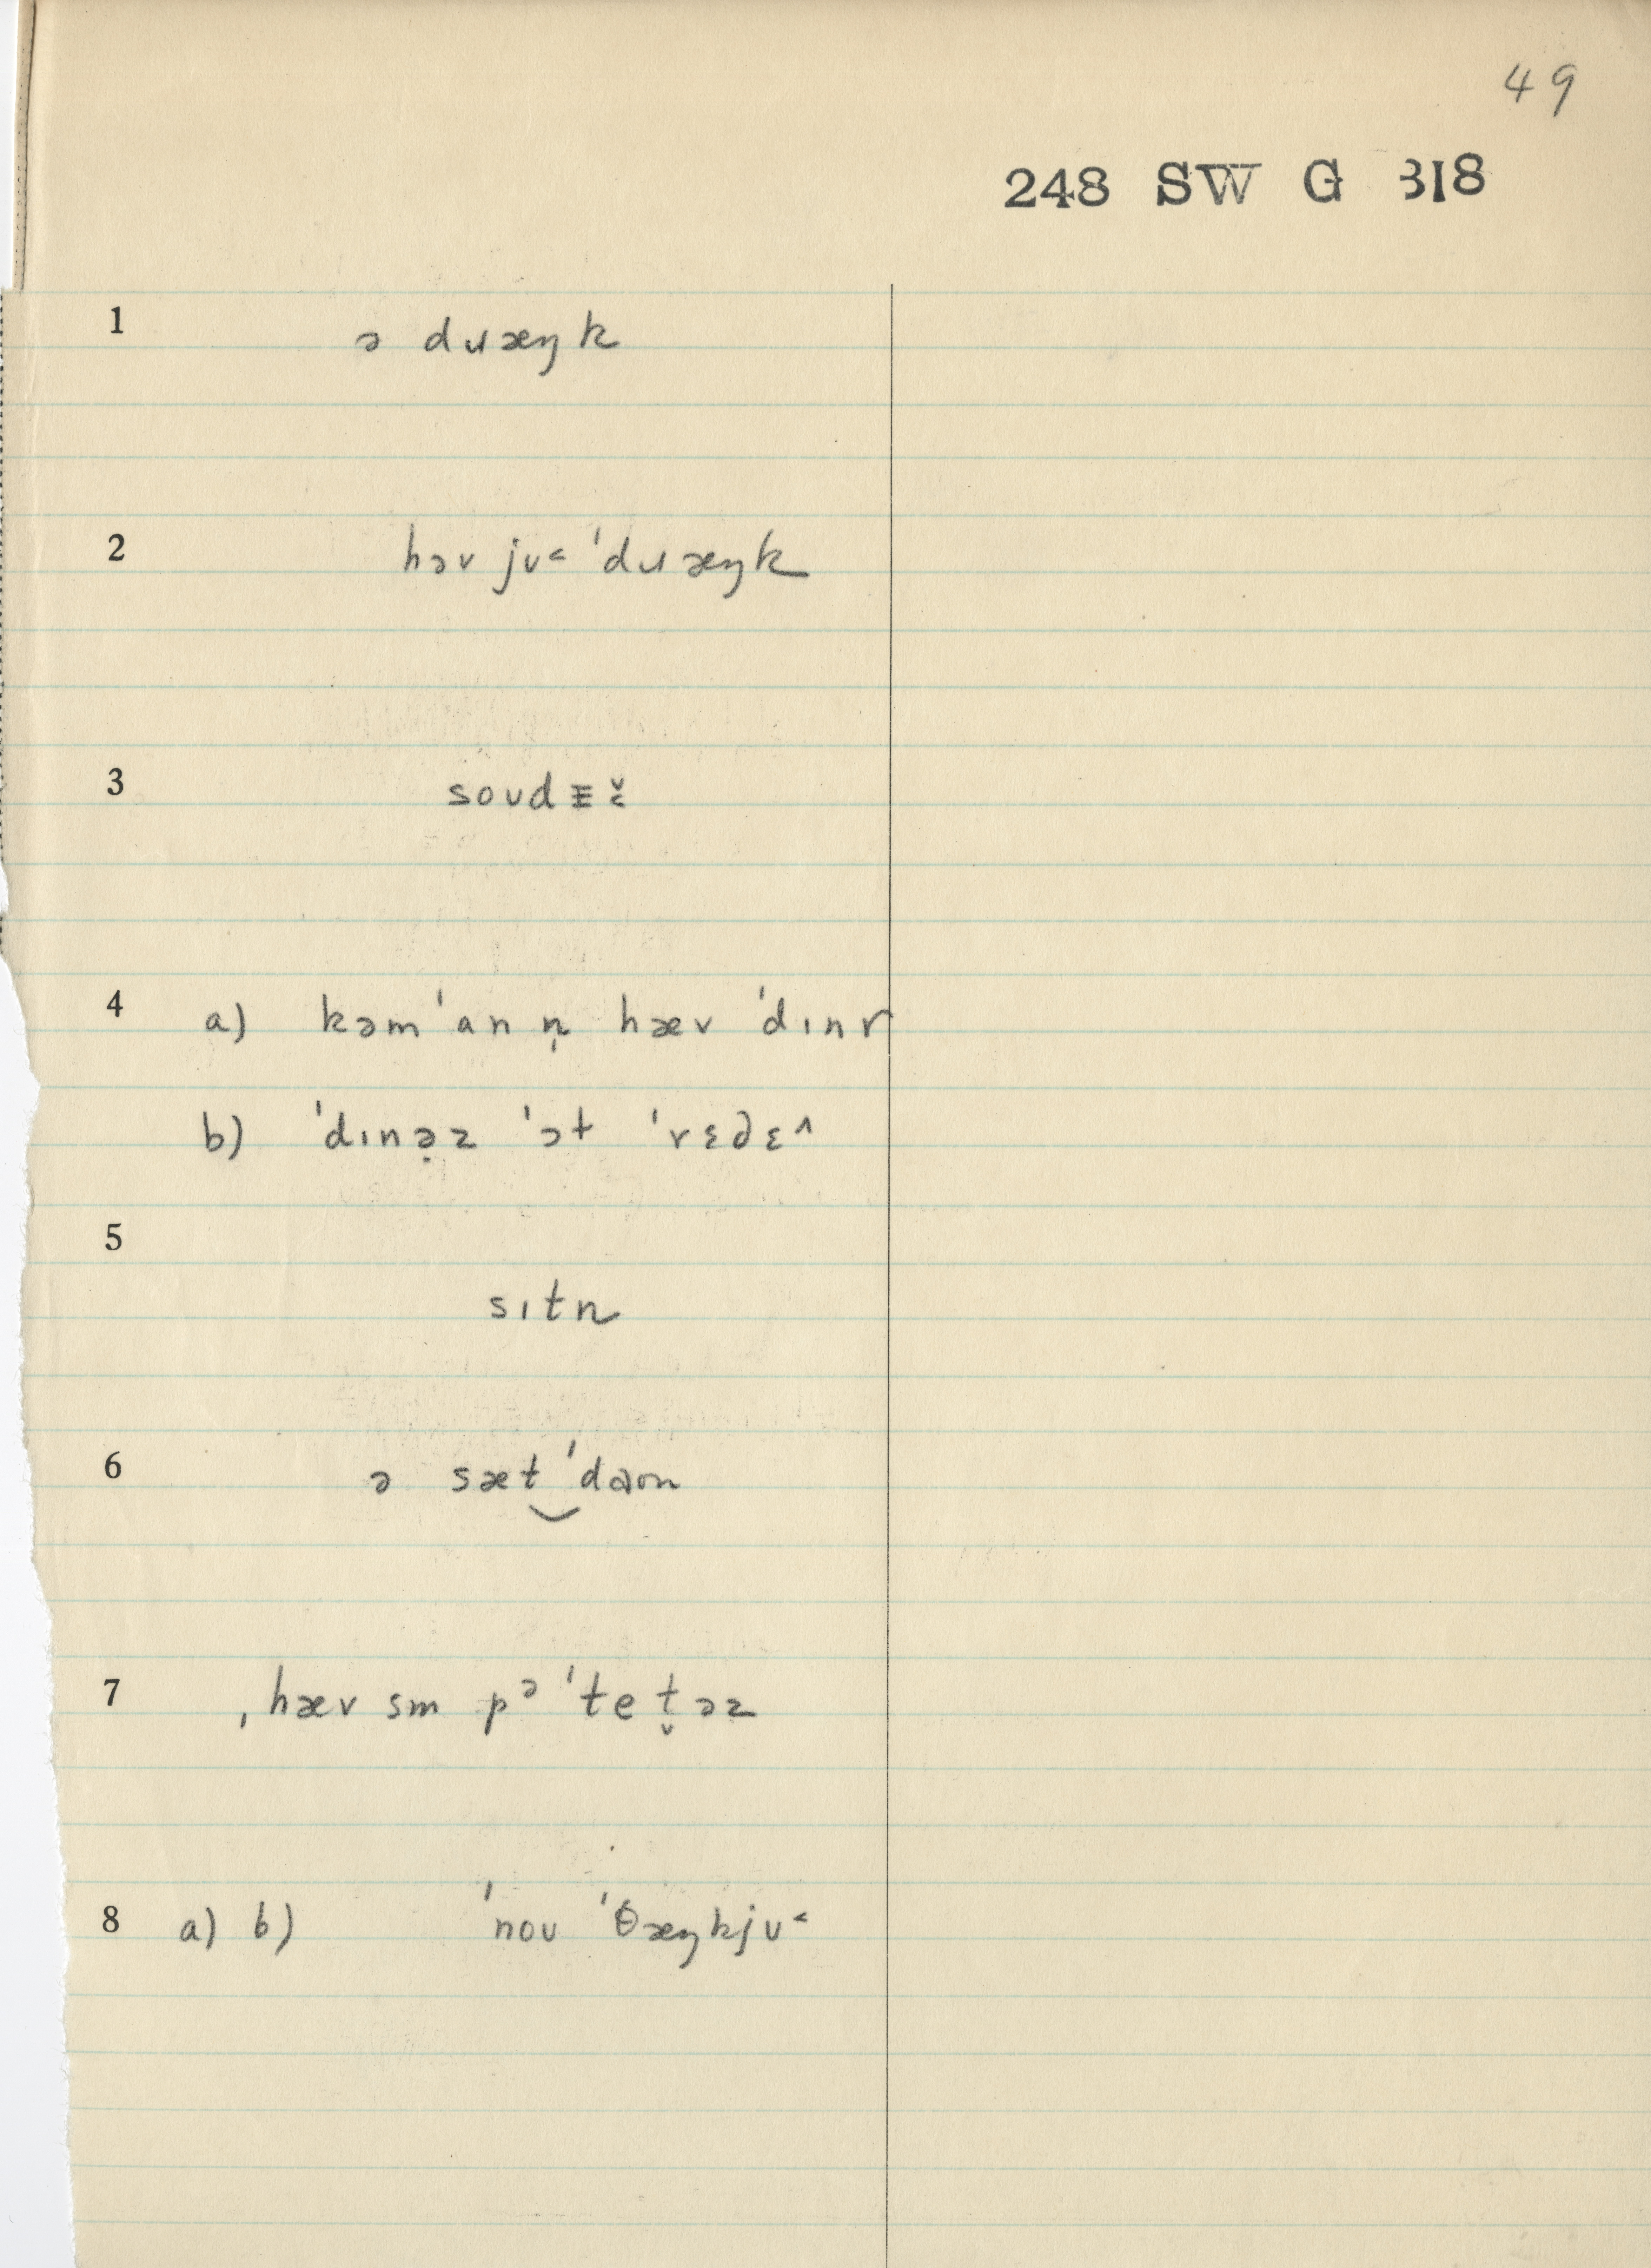 49
248 SW G 318
1 ə dɹæŋk
2 həv jʊ˂ ˈdɹæŋk
3 soʊdᵻč̬
4 a) kəmˈan n̩ hæv ˈdɪnɚ
b) ˈdɪnə̣z ˈət ˈrɛdɛ^
5 sɪtn
6 ə sæt‿ˈdaʊn
7 ˌhæv sm pᵊˈtet̬əz
8 a) b) ˈnoʊ ˈθæŋkjʊ˂